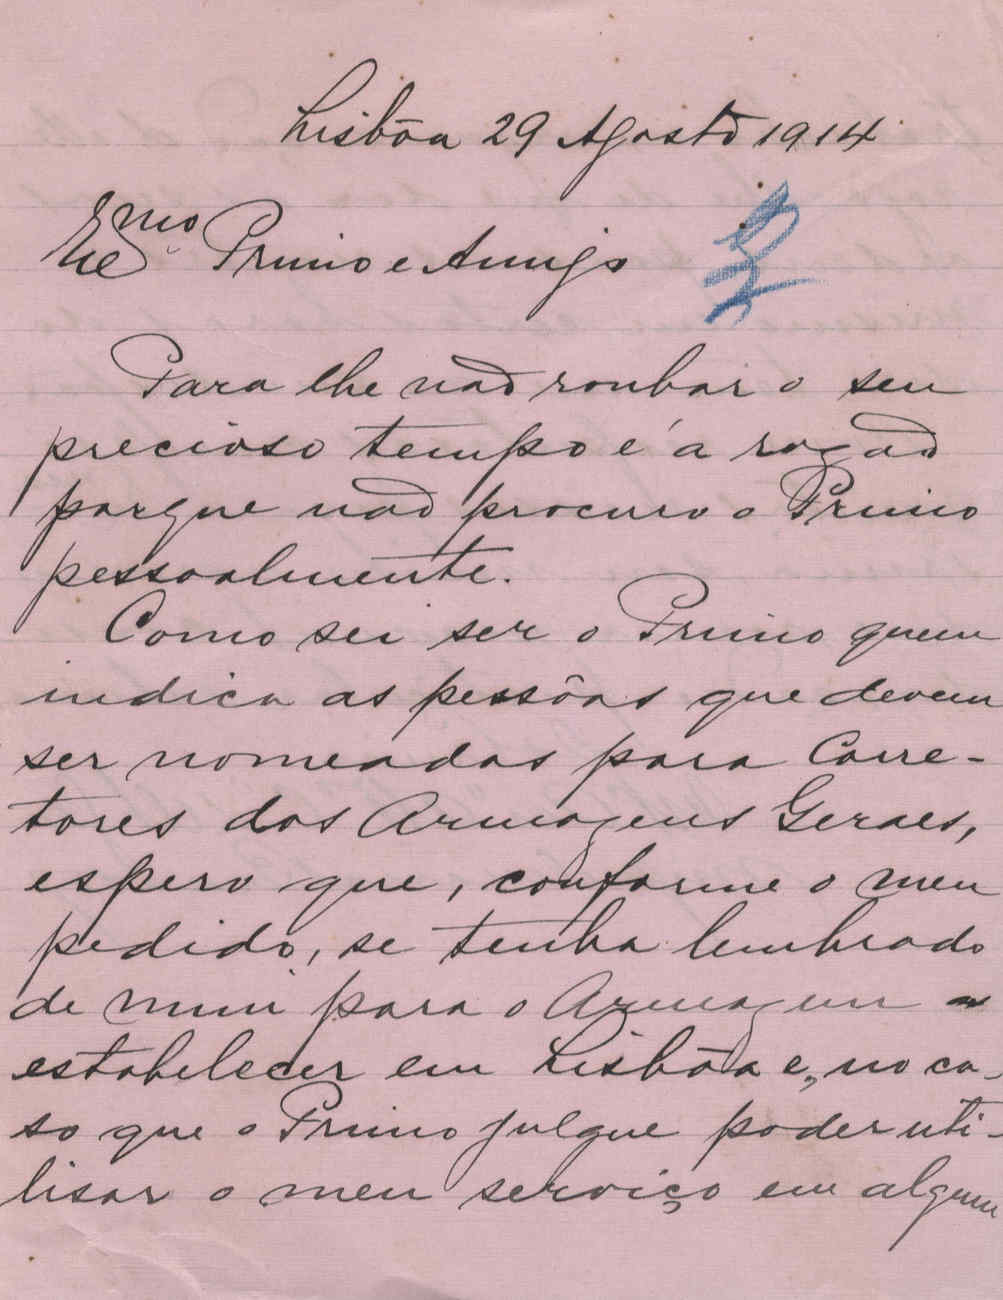 Lisbôa 29 Agosto 1914
Exmo Primo e Amigo
Para lhe não roubar o seu
precioso tempo é a rasão
porque não procuro o Primo
pessoalmente.
Como sei ser o Primo quem
indica as pessôas que devem
ser nomeadas para Corre-
tores dos Armazens Geraes,
espero que, conforme o meu
pedido, se tenha lembrado
de mim para o Armazem a
estabelecer em Lisbôa e, no ca-
so que o Primo julgue poder uti-
lisar o meu serviço em algum